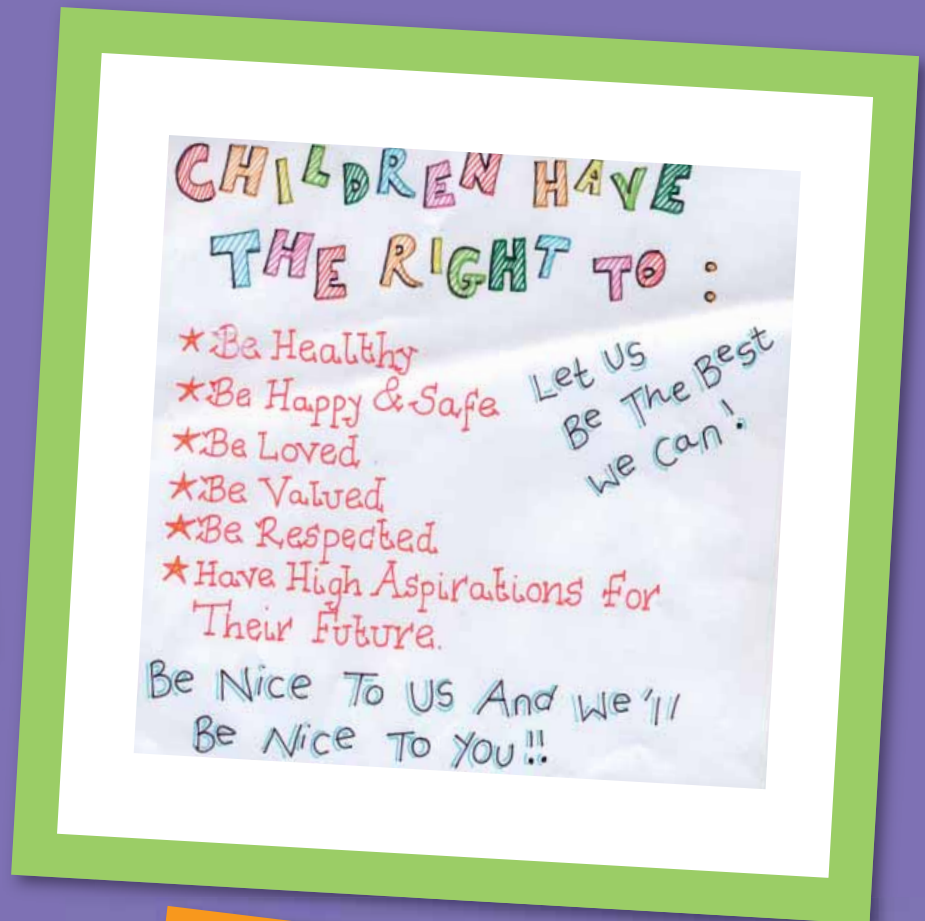 CHILDREN HAVE
THE RIGHT TO :
Be Healthy
Be Happy & Safe
Be Loved
Be Valued
Be Respected
Have High Aspirations for
Their Future.
Let Us
Be The Best
We Can!
Be Nice To US And We'll
Be Nice To You!!